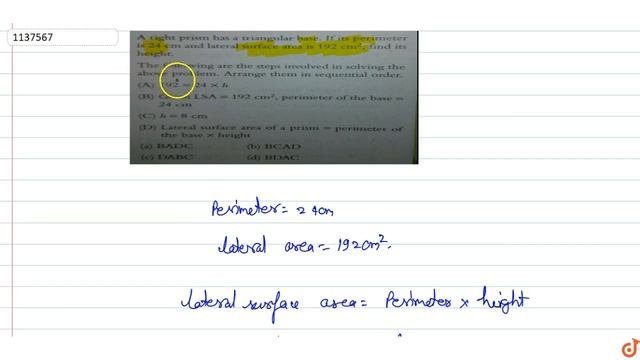 1137567
A right prism has a triangular base. If its perimeter
is 24 cm and lateral surface area is 192 cm², find its
height.
The following are the steps involved in solving the
above problem. Arrange them in sequential order.
(A) 192 = 24 × h
(B) LSA = 192 cm², perimeter of the base =
24 cm
(C) h = 8 cm
(D) Lateral surface area of a prism = perimeter of
the base × height
(a) BADC (b) BCAD
(c) DABC (d) BDAC
Perimeter = 24cm
lateral area = 192cm².
lateral surface area = Perimeter × height